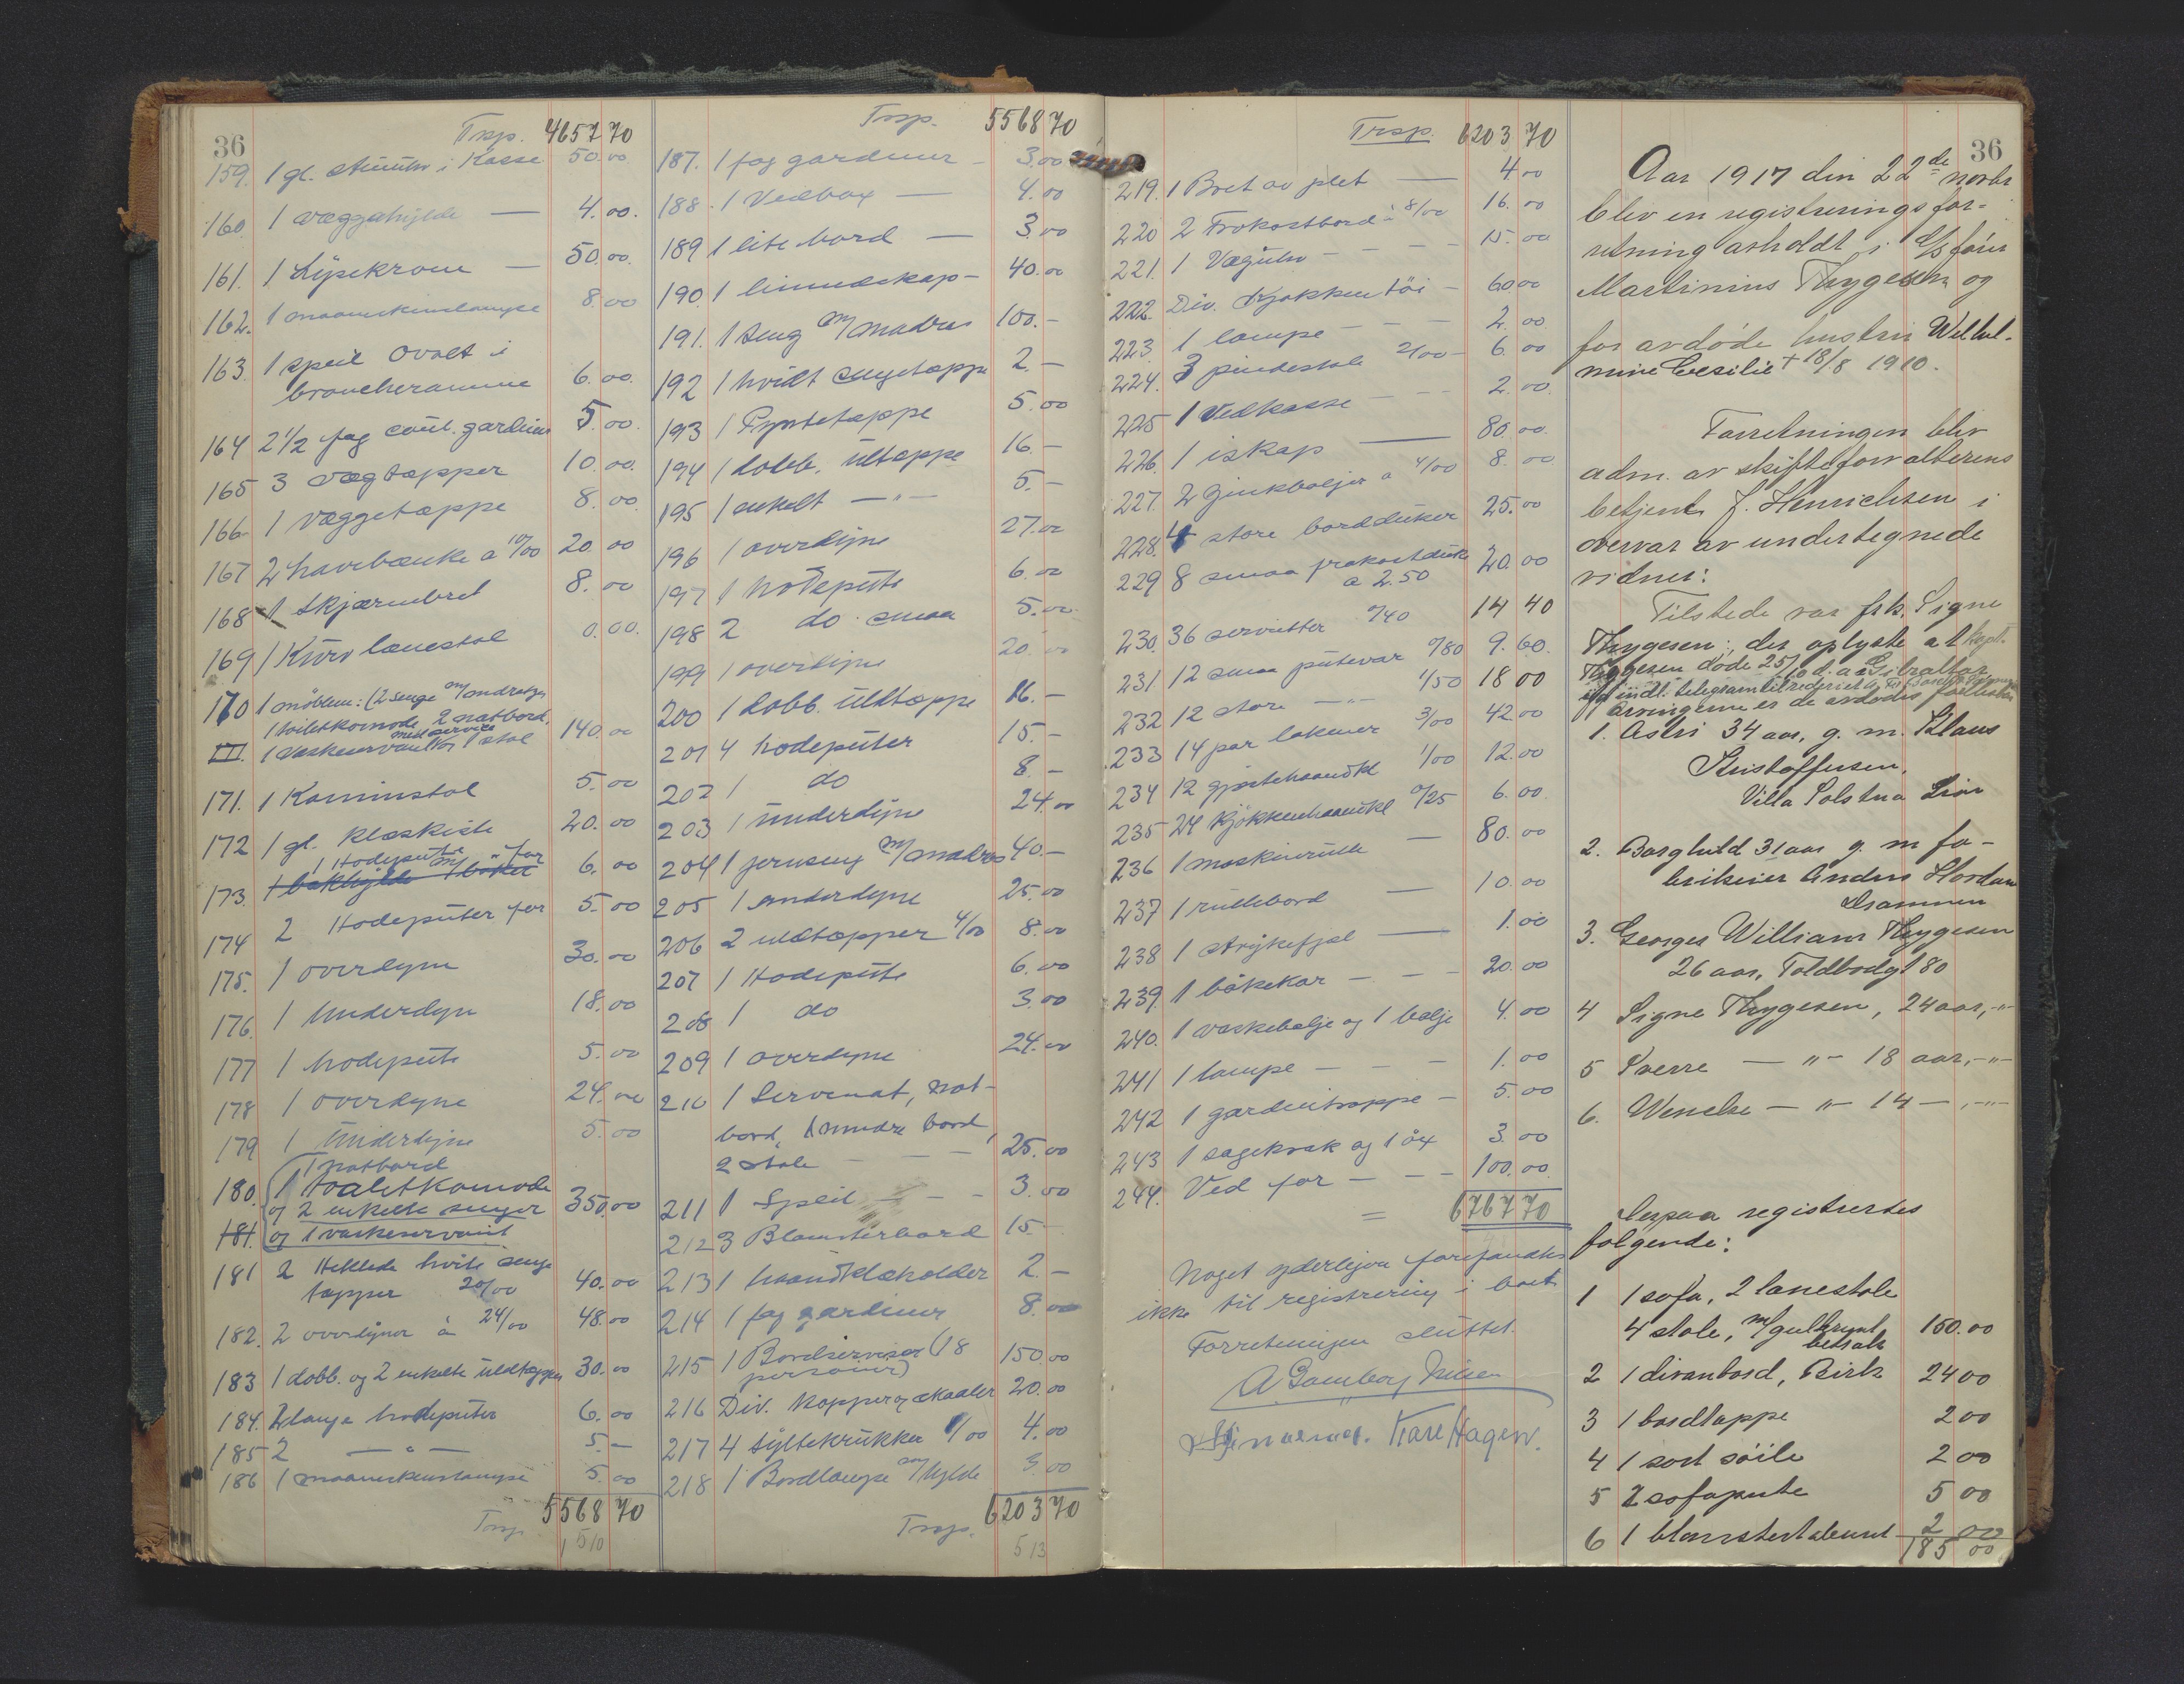 36
Trsp. 4657 70
159. 1 gl. stueuhr i Kasse 50.00
160 1 væggehylde — 4.00.
161. 1 Lysekrone — 50.00.
162. 1 maaneskinslampe 8.00
163. 1 speil ovalt i
broncheramme 6.00.
164 2 1/2 fag gardiner 5.00.
165 3 vægtæpper 10.00.
166 1 væggetæppe 8.00.
167 2 havebænke a 10/00 20.00
168 1 Skjærmbret 8.00
169 1 Kurv lænestol 0.00.
170 1 möblem: (2 senge m/ madrasser
1 toiletkomode 2 natbord,
III. 1 vaskeservant med service 1 stol 140.00
171. 1 Kaminstol 5.00
172 1 gl. klæskiste 20.00
173. 1 Hodepute for 6.00
174 2 Hodeputer for 5.00
175. 1 overdyne 30.00
176. 1 Underdyne 18.00
177 1 hodepute 5.00
178 1 overdyne 24.00
179 1 Underdyne 5.00
1 natbord
180. 1 toaletkomode
og 2 enkelte senger 350.00
181. og 1 vaskeservant
181 2 Heklede hvite senge
tæpper 20/00 40.00
182. 2 overdyner à 24/00 48.00
183 1 dobb. og 2 enkelte uldtæpper 30.00
184. 2 lange hodeputer 6.00
185 2 — " — 5.—
186 1 maaneskinslampe 5.00
Trsp. 5568 70
1510
Trsp. 5568 70
187. 1 fag gardiner — 3.00
188. 1 Vedbox — 4.00
189 1 lite bord — 3.00
190. 1 linnedskap — 40.00
191. 1 seng m/ madras 100.—
192 1 hvidt sengetæppe 2.—
193 1 Pyntetæppe 5.00
194 1 dobb. ultæppe 16.—
195 1 enkelt — " — 5.—
196 1 overdyne 27.00
197 1 hodepute 6.00
198 2 do smaa 5.00
199 1 overdyne 20.00
200 1 dobb. uldtæppe 16.—
201 4 hodeputer 15.—
202 1 do 8.—
203 1 underdyne 24.00
204 1 jernseng m/ madras 40.—
205 1 underdyne 25.00
206 2 uldtæpper 4/00 8.00
207 1 Hodepute 6.00
208 1 do 3.00
209 1 overdyne 24.00
210 1 Servenat, nat-
bord, 1 mindre bord,
2 stole — — — 25.00
211 1 Speil — — 3.00
212 3 Blomsterbord 15.—
213 1 haandklæholder 2.—
214 1 fag gardiner 8.00
215 1 Bordserviser (18
personer) 150.00
216 Div. kopper og skaaler 20.00
217 4 syltekrukker 1/00 4.00
218 1 Bordlampe m/ hylde 3.00
Trsp. 6203 70
513
Trsp. 6203 70
219. 1 Bret av plet — 4.00
220 2 Frokostbord à 8/00 16.00
221. 1 Væguhr — — — 15.00
222. Div. kjøkkentöi — 60.00
223. 1 lampe — — — 2.00
224. 3 pindestole 2/00 — 6.00
225 1 Vedkasse — — 2.00.
226. 1 iskap — 80.00.
227. 2 Zinkbaljer a 4/00 8.00
228. 4 store bordduker 25.00
229 8 smaa frokostduke
a 2.50 20.00
230. 36 servietter 0/40 14 40
231 12 smaa putevar 0/80 9.60.
232 12 store — " — 1/50 18 00
233 14 par lakener 3/00 42.00
234 12 gjæstehaandkl 1/00 12.00
235 24 Kjökkenhaandkl 0/25 6.00
236 1 maskinrulle — 80.00
237 1 rullebord — 10.00
238 1 strykefjæl — 1.00
239. 1 bökekar — — — 20.00
240. 1 vaskebalje og 1 balje 4.00
241 1 lampe — — — 1.00
242 1 gardintrappe — 5.00
243 1 sagekrak og 1 öx 3.00
244. Ved for — — — 100.00.
= 6767 70
Noget yderligere forefandtes
ikke til registrering i boet
Forretningen sluttet.
Kåre Hagen.
36
Aar 1917 den 22de novbr
blev en registreringsfor-
retning avholdt i
Martinius Thygesen og
for avdøde hustru Wilhel-
mine Cecilie + 18/8 1910.
Forretningen blev
adm. av skifteforvalterens
betjent J. Henrichsen i
overvær av undertegnede
vidner:
Tilstede var frk. Signe
Thygesen; der oplyste at kapt.
Thygesen døde 25/10 d. a. Gibraltar
ifg indl. telegram til rederiet
Arvingerne er de avdødes fællesbørn
1. Astri 34 aar, g. m. Klaus
Kristoffersen,
Villa Solstua Lier
2. Borghild 31 aar g. m fa-
brikeier Anders Hordan
Drammen
3. Georges William Thygesen
26 aar, Toldbodgt 80
4 Signe Thygesen, 24 aar, - " -
5 Sverre — " — 18 aar, - " -
6. Wenche — " — 14 —, - " -
Derpaa registrertes
følgende:
1 1 sofa, 2 lænestole
4 stole, m/ gulbrunt
betræk 150.00
2 1 divanbord, Birk 24 00
3 1 bordtæppe 2 00
4 1 sort söile 2 00
5 2 sofapute 5 00
6 1 blomstertaburet 2 00
185 00